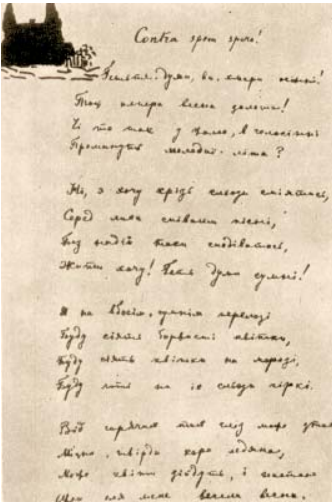 Contra spem spero!
Гетьте, думи, ви хмари осінні!
Тож тепера весна золота!
Чи то так у жалю, в голосінні
Проминуть молодії літа?
Ні, я хочу крізь сльози сміятись,
Серед лиха співати пісні,
Без надії таки сподіватись,
Жити хочу! Геть думи сумні!
Я на вбогім, сумнім перелозі
Буду сіять барвисті квітки,
Буду сіять квітки на морозі,
Буду лить на їх сльози гіркі.
Від горячих тих сльоз може
Міцна, тверда кора ледяна,
Може квіти зійдуть, і настане
для мене весела весна.